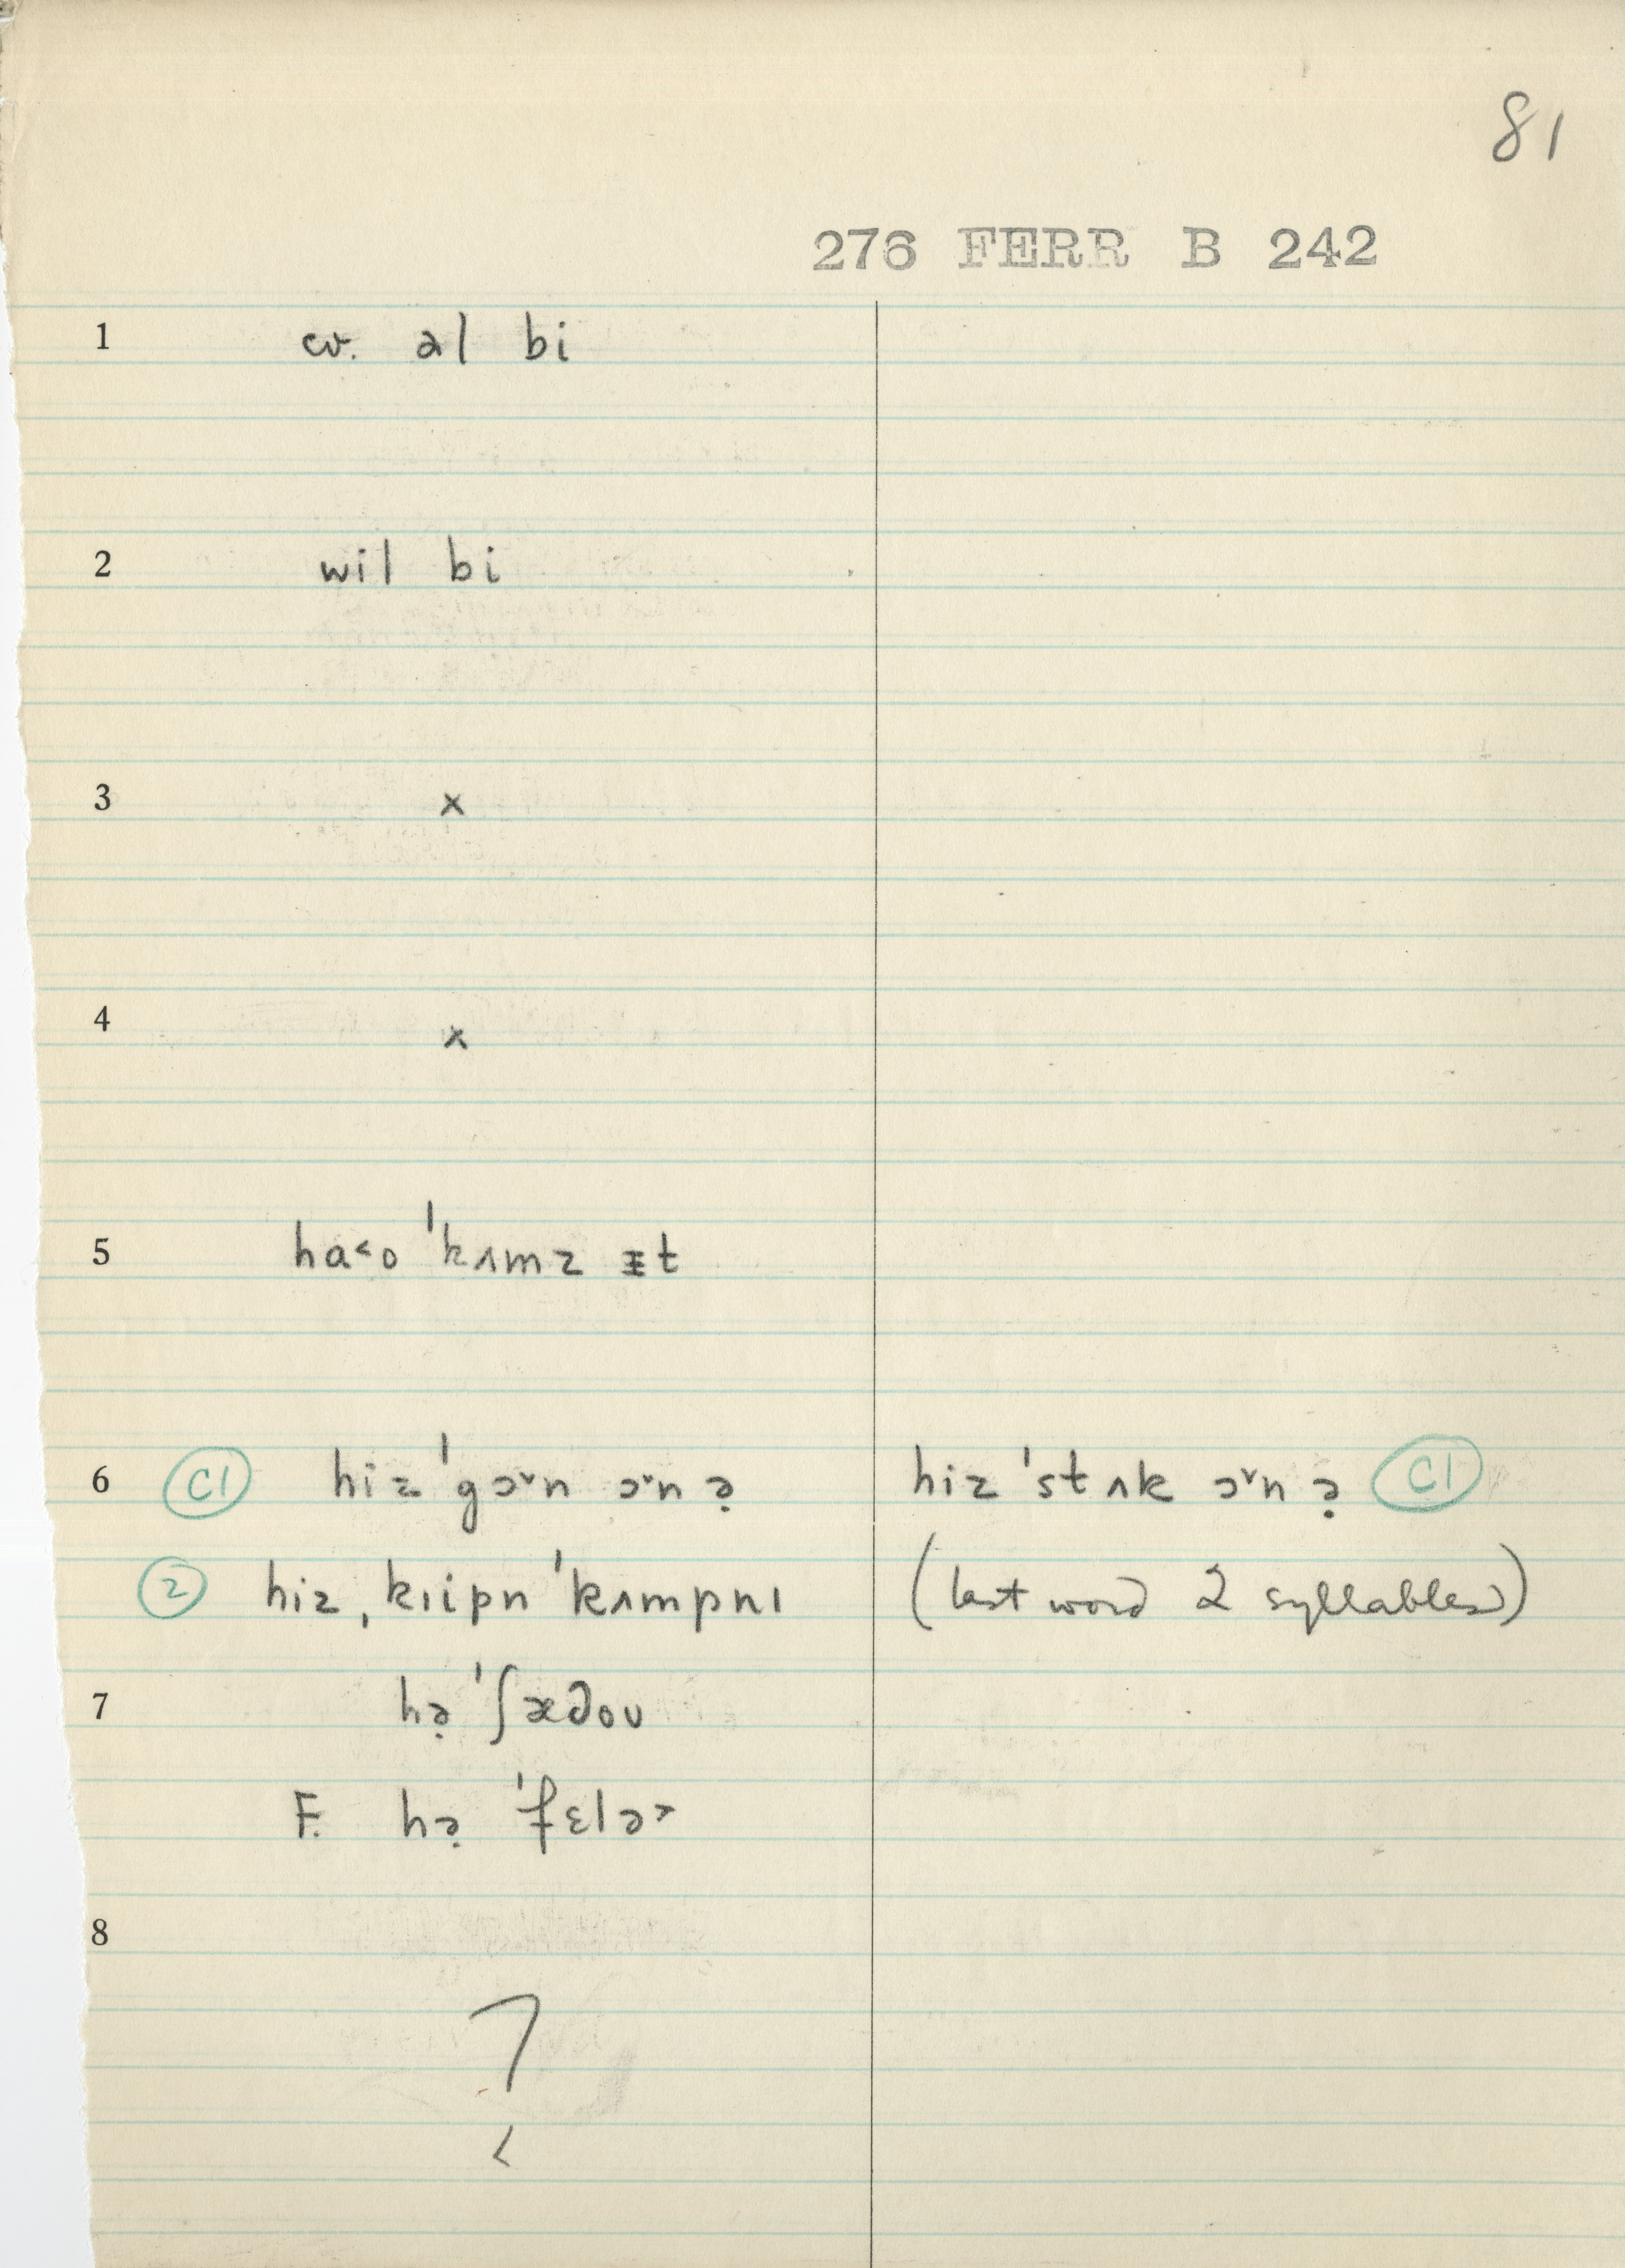 81
276 FERR B 242
1 cv. əl bi
2 wil bi
3 x
4 x
5 ha˂o ˈkʌmz ᵻt
6 C1 hiz ˈgɔ˅n ɔ˅n ə̣ hiz ˈstʌk ɔ˅n ə̣ C1
2 hiz ˌkɪipn ˈkʌmpnɪ (last word 2 syllables)
7 hə̣ ˈʃæ∂oʊ
F. hə̣ ˈfɛlə˃
8
?